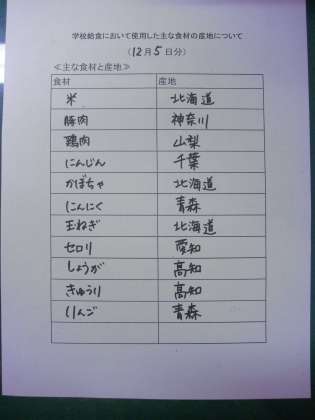 学校給食において使用した主な食材の産地について
(12月5日分)
≪主な食材と産地≫
食材 産地
米 北海道
豚肉 神奈川
鶏肉 山梨
にんじん 千葉
かぼちゃ 北海道
にんにく 青森
玉ねぎ 北海道
セロリ 愛知
しょうが 高知
きゅうり 高知
りんご 青森